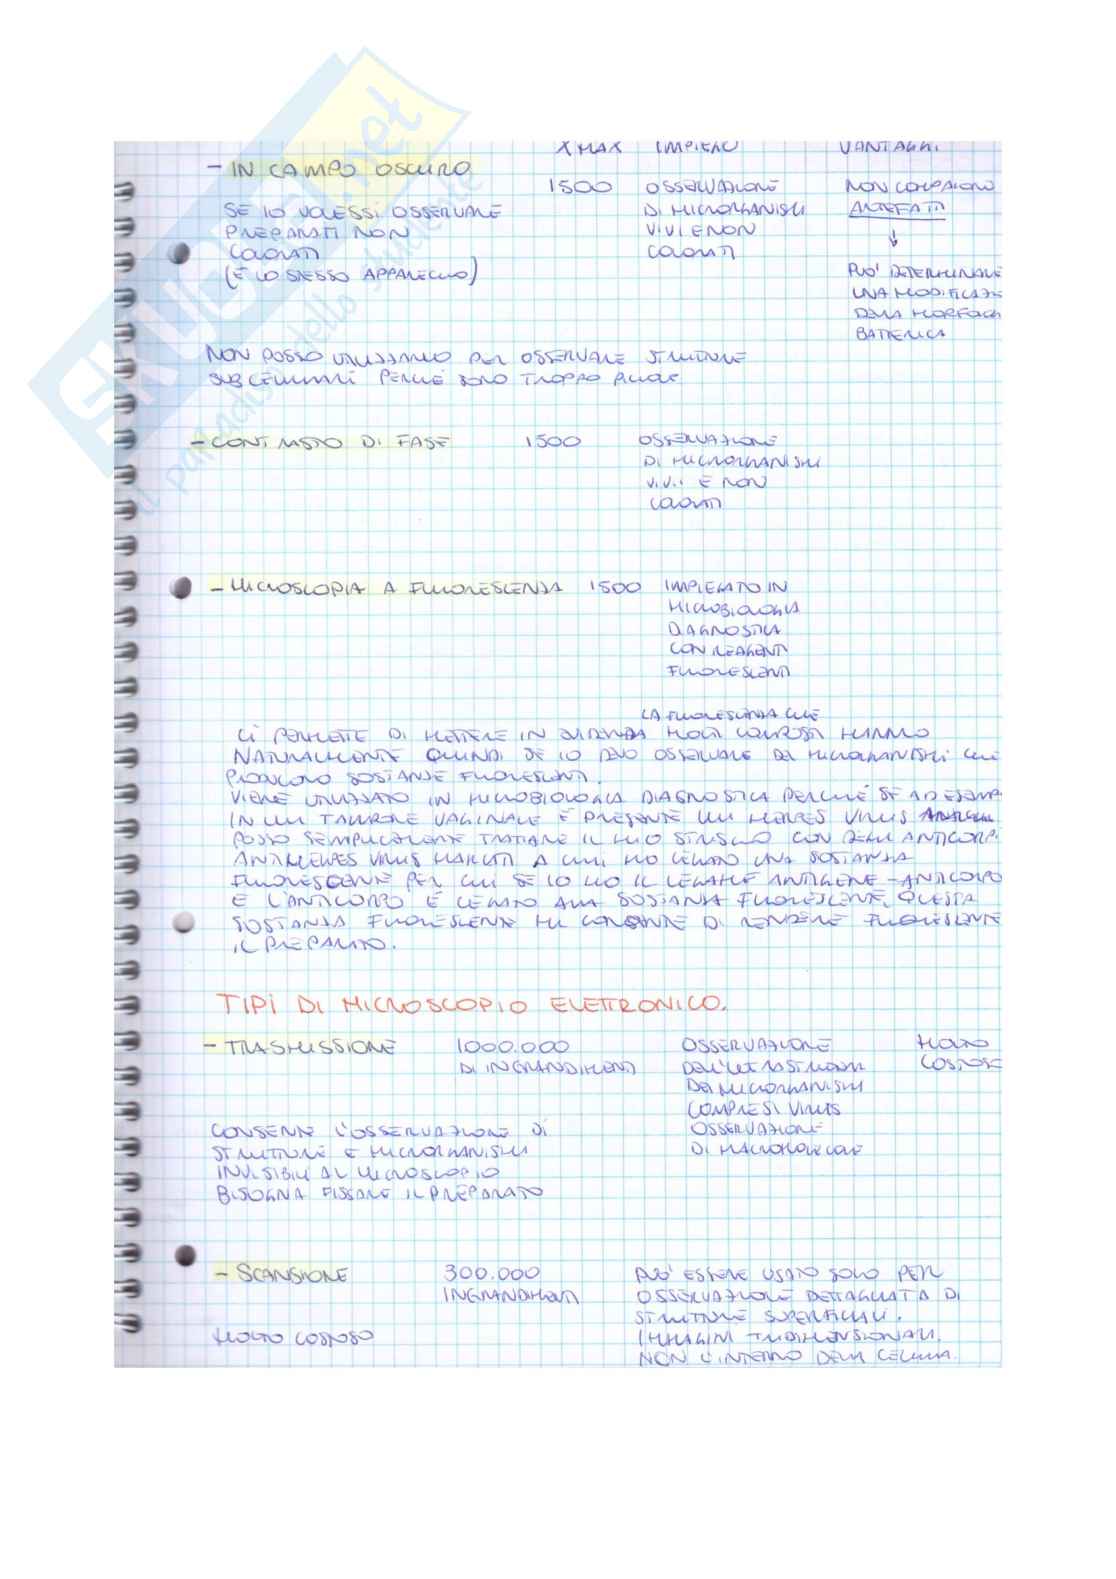 X MAX IMPIEGO VANTAGGI
- IN CAMPO OSCURO 1500 OSSERVAZIONE NON COMPAIONO
SE IO VOLESSI OSSERVARE DI MICRORGANISMI ARTEFATTI
PREPARATI NON VIVI E NON
COLORATI COLORATI
(È LO STESSO APPARECCHIO) PUO' DETERMINARE
UNA MODIFICAZ
DELLA MORFOLOGIA
BATTERICA
NON POSSO UTILIZZARLO PER OSSERVARE STRUTTURE
SUBCELLULARI PERCHÉ SONO TROPPO PICCOLE
- CONTRASTO DI FASE 1500 OSSERVAZIONE
DI MICRORGANISMI
VIVI E NON
COLORATI
- MICROSCOPIA A FLUORESCENZA 1500 IMPIEGATO IN
MICROBIOLOGIA
DIAGNOSTICA
CON REAGENTI
FLUORESCENTI
LA FLUORESCENZA CHE
CI PERMETTE DI METTERE IN EVIDENZA MOLTI COMPOSTI HANNO
NATURALMENTE QUINDI SE IO DEVO OSSERVARE DEI MICRORGANISMI CHE
PRODUCONO SOSTANZE FLUORESCENTI.
VIENE UTILIZZATO IN MICROBIOLOGIA DIAGNOSTICA PERCHÉ SE AD ESEMP
IN UN TAMPONE VAGINALE È PRESENTE UN HERPES VIRUS
POSSO SEMPLICEMENTE TRATTARE IL MIO STRISCIO CON DEGLI ANTICORPI
ANTIHERPES VIRUS MARCATI A CUI HO LEGATO UNA SOSTANZA
FLUORESCENTE PER CUI SE IO HO IL LEGAME ANTIGENE - ANTICORPO
E L'ANTICORPO È LEGATO ALLA SOSTANZA FLUORESCENTE, QUESTA
SOSTANZA FLUORESCENTE MI CONSENTE DI RENDERE FLUORESCENTE
IL PREPARATO.
TIPI DI MICROSCOPIO ELETTRONICO.
- TRASMISSIONE 1000.000 OSSERVAZIONE MOLTO
DI INGRANDIMENTI DELL'ULTRASTRUTTURA COSTOSO
DEI MICRORGANISMI
COMPRESI VIRUS
CONSENTE L'OSSERVAZIONE DI OSSERVAZIONE
STRUTTURE E MICRORGANISMI DI MACROMOLECOLE
INVISIBILI AL MICROSCOPIO
BISOGNA FISSARE IL PREPARATO
- SCANSIONE 300.000 PUO' ESSERE USATO SOLO PER
INGRANDIMENTI OSSERVAZIONE DETTAGLIATA DI
STRUTTURE SUPERFICIALI.
MOLTO COSTOSO IMMAGINI TRIDIMENSIONALI.
NON L'INTERNO DELLA CELLULA.
SKUOLA.net
il paradiso dello studente